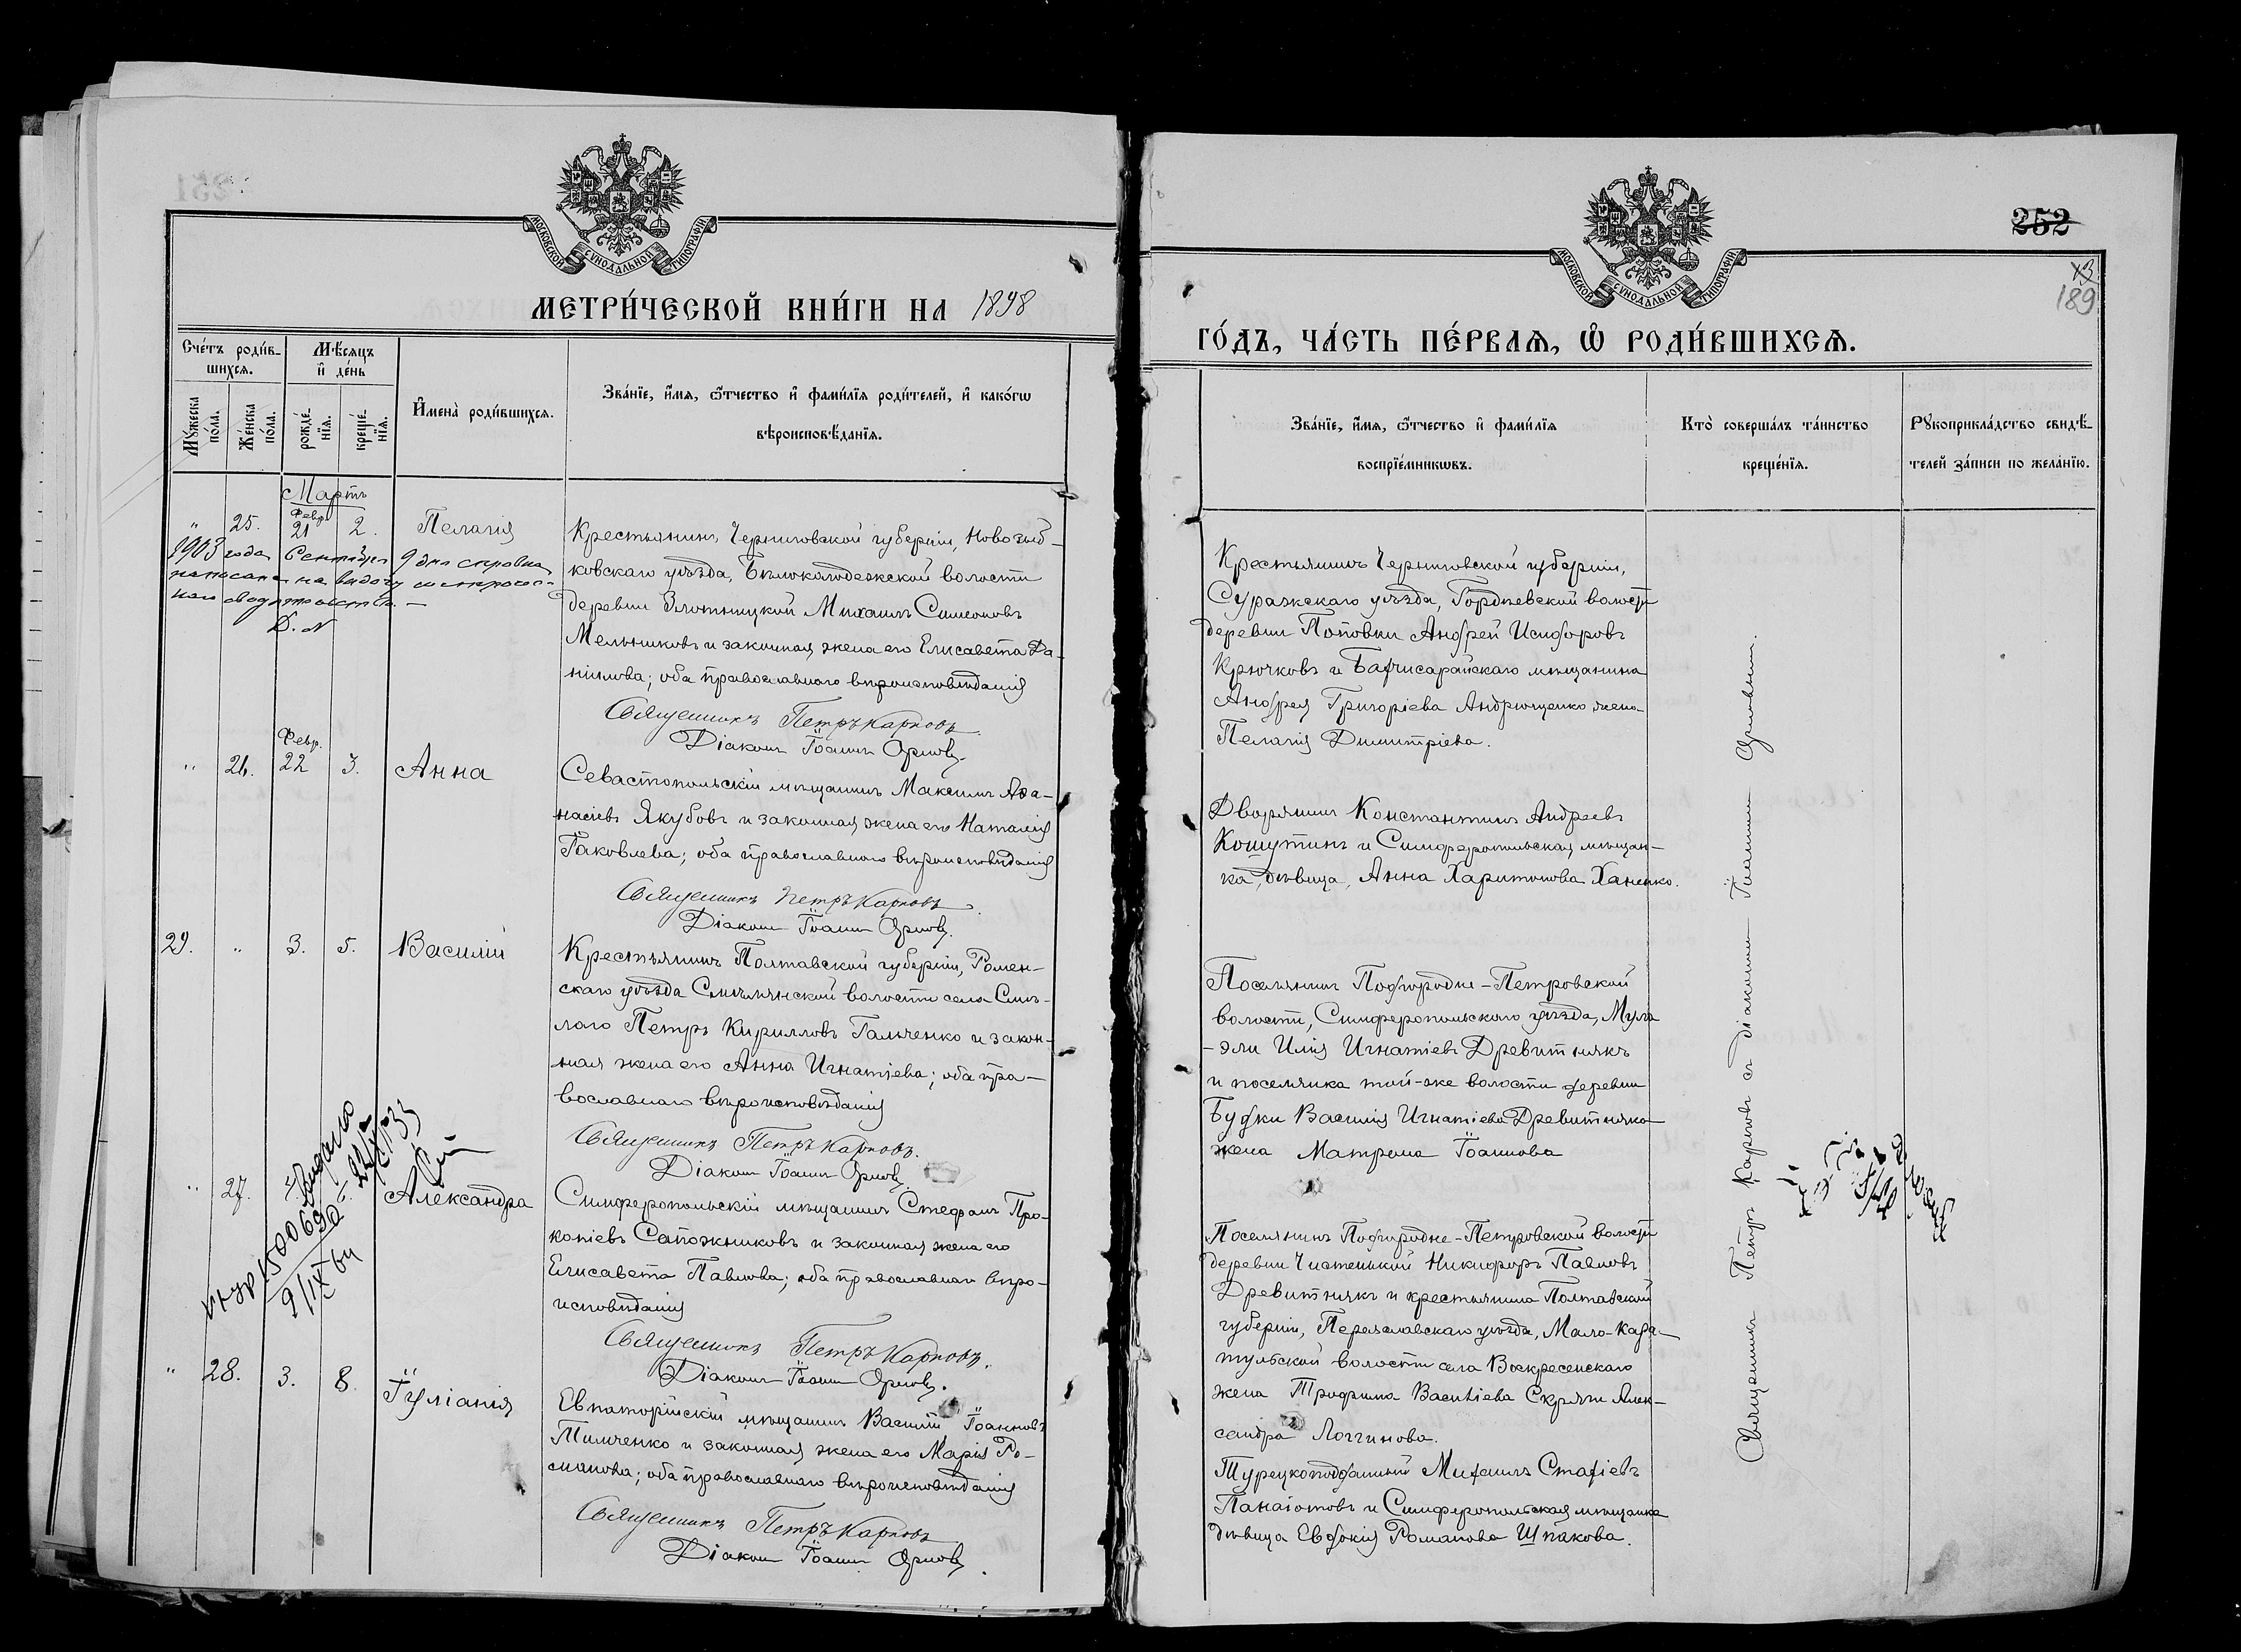 МОСКОВСКОЙ СУНОДАЛЬНОЙ ТИПОГРАФІИ
МЕТРИ́ЧЕСКОЙ КНИ́ГИ НА 1898
Сче́тъ роди́в-
шихсѧ.
Мѣ́сѧцъ
и҆ де́нь
Мꙋ́жеска
по́ла.
Же́нска
по́ла.
рожде́-
нїѧ.
креще́-
нїѧ.
И҆мена̀ роди́вшихсѧ.
Зва́нїе, и҆́мѧ, ѻ҆́тчество и҆ фами́лїѧ роди́телей, и҆ како́гѡ
вѣроисповѣ́данїѧ.
Мартъ
" 25. Февр. 21 2. Пелагія
Крестьянинъ Черниговской губерніи, Новозыб-
ковскаго уѣзда, Бѣлоколодежской волости
деревни Злотницкой Михаилъ Симеоновъ
Мельниковъ и законная жена его Елисавета Да-
нiилова; оба православнаго вѣроисповѣданія
1903 года Сентября 9 дня справка
написана на выдачу
Священникъ Петръ Карповъ.
Діаконъ Іоаннъ Орловъ.
" 26. Февр. 22 3. Анна
Севастопольскій мѣщанинъ Максимъ Аѳа-
насіевъ Якубовъ и законная жена его Наталія
Іаковлева; оба православнаго вѣроисповѣданія
Священникъ Петръ Карповъ.
Діаконъ Іоаннъ Орловъ.
29. " 3. 5. Василій
Крестьянинъ Полтавской губерніи, Ромен-
скаго уѣзда Смѣлянской волости села Смѣ-
лаго Петръ Кирилловъ Гальченко и закон-
ная жена его Анна Игнатіева; оба пра-
вославнаго вѣроисповѣданія
Священникъ Петръ Карповъ.
Діаконъ Іоаннъ Орловъ.
" 27. Александра
Симферопольскій мѣщанинъ Стефанъ Про-
копіевъ Сапожниковъ и законная жена его
Елисавета Павлова; оба православнаго вѣро-
исповѣданія
Священникъ Петръ Карповъ.
Діаконъ Іоаннъ Орловъ.
9/IX 64
" 28. 3. 8. Іуліанія
Евпаторійскій мѣщанинъ Василій Іоанновъ
Тимченко и законная жена его Марія Ро-
манова; оба православнаго вѣроисповѣданія
Священникъ Петръ Карповъ
Діаконъ Іоаннъ Орловъ.
МОСКОВСКОЙ СУНОДАЛЬНОЙ ТИПОГРАФІИ
252
189
ГО́ДЪ, ЧА́СТЬ ПЕ́РВАѦ, Ѡ҆ РОДИ́ВШИХСѦ.
Зва́нїе, и҆́мѧ, ѻ҆́тчество и҆ фами́лїѧ
воспрїе́мникѡвъ.
Кто̀ соверша́лъ та́инство
креще́нїѧ.
Рꙋкоприкла́дство свидѣ́-
телей за́писи по жела́нїю.
Крестьянинъ Черниговской губерніи,
Суражскаго уѣзда, Гордѣевской волости
деревни Поповки Андрей Исидоровъ
Крючковъ и Бахчисарайскаго мѣщанина
Андрея Григоріева Андрющенко жена
Пелагія Димитріева.
Дворянинъ Константинъ Андреевъ
Кошутинъ и Симферопольская мѣщан-
ка, дѣвица, Анна Харитонова Ханенко.
Поселянинъ Подгородне-Петровской
волости, Симферопольскаго уѣзда, Мула
-эли Илія Игнатіевъ Древитнякъ
и поселянка той-же волости деревни
Будки Василія Игнатіева Древитняка
жена Матрона Іоаннова
Поселянинъ Подгородне-Петровской волости
деревни Чистенькой Никифоръ Павловъ
Древитнякъ и крестьянина Полтавской
губерніи, Переяславскаго уѣзда, Мало-Кара-
тульской волости села Воскресенскаго
жена Трофима Василіева Скряги Алек-
сандра Логгинова.
Турецкоподданный Михаилъ Стафіевъ
Панаіотовъ и Симферопольская мѣщанка
дѣвица Евдокія Романова Шпакова.
Священникъ Петръ Карповъ съ діакономъ Іоанномъ Орловымъ.